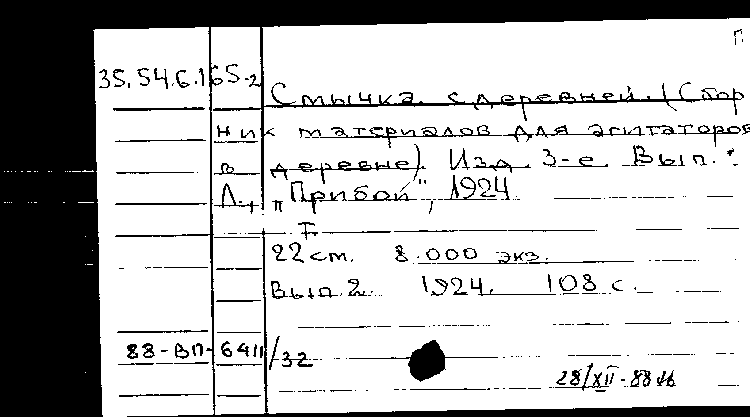 П
35.54.6.165-2
Смычка с деревней. (Сбор
ник материалов для агитаторов
в деревне). Изд. 3-е. Вып.
Л., „Прибой“, 1924
Т.
22 см. 8.000 экз.
Вып. 2. 1924. 108 с.
88-ВП-6411/32
28/XII-88